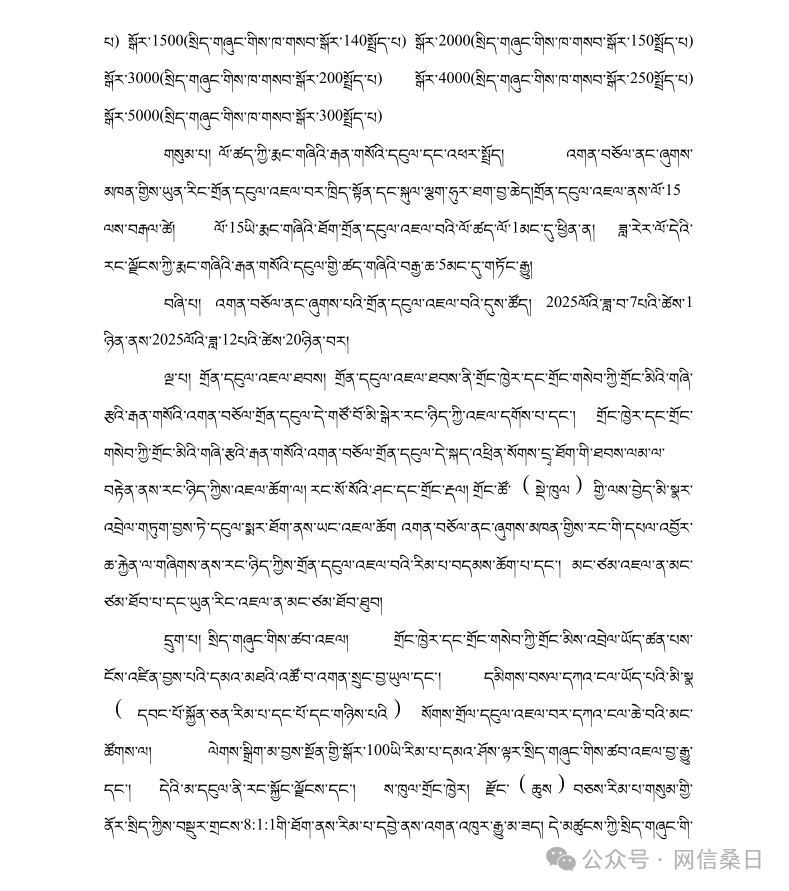 པ) སྒོར་1500(སྲིད་གཞུང་གིས་ཁ་གསབ་སྒོར་140སྤྲོད་པ) སྒོར་2000(སྲིད་གཞུང་གིས་ཁ་གསབ་སྒོར་150སྤྲོད་པ)
སྒོར་3000(སྲིད་གཞུང་གིས་ཁ་གསབ་སྒོར་200སྤྲོད་པ) སྒོར་4000(སྲིད་གཞུང་གིས་ཁ་གསབ་སྒོར་250སྤྲོད་པ)
སྒོར་5000(སྲིད་གཞུང་གིས་ཁ་གསབ་སྒོར་300སྤྲོད་པ)
གསུམ་པ། ལོ་ཚད་ཀྱི་རྨང་གཞིའི་རྒན་གསོའི་དངུལ་དང་འཕར་སྤྲོད། འགན་བཅོལ་ནང་ཞུགས་
མཁན་གྱིས་ཡུན་རིང་གྲོན་དངུལ་འཇལ་བར་ཁྲིད་སྟོན་དང་སྐུལ་ལྕག་ཧུར་ཐག་བྱ་ཆེད།གྲོན་དངུལ་འཇལ་ནས་ལོ་15
ལས་བརྒལ་ཚེ། ལོ་15ཡི་རྨང་གཞིའི་ཐོག་གྲོན་དངུལ་འཇལ་བའི་ལོ་ཚད་ལོ་1མང་དུ་ཕྱིན་ན། ཟླ་རེར་ལོ་དེའི་
རང་ལྗོངས་ཀྱི་རྨང་གཞིའི་རྒན་གསོའི་དངུལ་གྱི་ཚད་གཞིའི་བརྒྱ་ཆ་5མང་དུ་གཏོང་རྒྱུ།
བཞི་པ། འགན་བཅོལ་ནང་ཞུགས་པའི་གྲོན་དངུལ་འཇལ་བའི་དུས་ཚོད། 2025ལོའི་ཟླ་བ་7པའི་ཚེས་1
ཉིན་ནས་2025ལོའི་ཟླ་12པའི་ཚེས་20ཉིན་བར།
ལྔ་པ། གྲོན་དངུལ་འཇལ་ཐབས། གྲོན་དངུལ་འཇལ་ཐབས་ནི་གྲོང་ཁྱེར་དང་གྲོང་གསེབ་ཀྱི་གྲོང་མིའི་གཞི་
རྩའི་རྒན་གསོའི་འགན་བཅོལ་གྲོན་དངུལ་དེ་གཙོ་བོ་མི་སྒེར་རང་ཉིད་ཀྱི་འཇལ་དགོས་པ་དང་། གྲོང་ཁྱེར་དང་གྲོང་
གསེབ་ཀྱི་གྲོང་མིའི་གཞི་རྩའི་རྒན་གསོའི་འགན་བཅོལ་གྲོན་དངུལ་དེ་སྐད་འཕྲིན་སོགས་དྲྭ་ཐོག་གི་ཐབས་ལམ་ལ་
བརྟེན་ནས་རང་ཉིད་ཀྱིས་འཇལ་ཆོག་ལ། རང་སོ་སོའི་ཤང་དང་གྲོང་རྡལ། གྲོང་ཚོ་（སྡེ་ཁུལ）གྱི་ལས་བྱེད་མི་སྣར་
འབྲེལ་གཏུག་བྱས་ཏེ་དངུལ་སྨར་ཐོག་ནས་ཡང་འཇལ་ཆོག འགན་བཅོལ་ནང་ཞུགས་མཁན་གྱིས་རང་གི་དཔལ་འབྱོར་
ཆ་རྐྱེན་ལ་གཞིགས་ནས་རང་ཉིད་ཀྱིས་གྲོན་དངུལ་འཇལ་བའི་རིམ་པ་བདམས་ཆོག་པ་དང་། མང་ཙམ་འཇལ་ན་མང་
ཙམ་ཐོབ་པ་དང་ཡུན་རིང་འཇལ་ན་མང་ཙམ་ཐོབ་ཐུབ།
དྲུག་པ། སྲིད་གཞུང་གིས་ཚབ་འཇལ། གྲོང་ཁྱེར་དང་གྲོང་གསེབ་ཀྱི་གྲོང་མིས་འབྲེལ་ཡོད་ཚན་པས་
ངོས་འཛིན་བྱས་པའི་དམའ་མཐའི་འཚོ་བ་འགན་སྲུང་བྱ་ཡུལ་དང་། དམིགས་བསལ་དཀའ་ངལ་ཡོད་པའི་མི་སྣ
（དབང་པོ་སྐྱོན་ཅན་རིམ་པ་དང་པོ་དང་གཉིས་པའི）སོགས་གྲོལ་དངུལ་འཇལ་བར་དཀའ་ངལ་ཆེ་བའི་མང་
ཚོགས་ལ། ལེགས་སྒྲིག་མ་བྱས་སྔོན་གྱི་སྒོར་100ཡི་རིམ་པ་དམའ་ཤོས་ལྟར་སྲིད་གཞུང་གིས་ཚབ་འཇལ་བྱ་རྒྱུ་
དང་། དེའི་མ་དངུལ་ནི་རང་སྐྱོང་ལྗོངས་དང་། ས་ཁུལ་གྲོང་ཁྱེར། རྫོང་（ཆུས）བཅས་རིམ་པ་གསུམ་གྱི་
ནོར་སྲིད་ཀྱིས་བསྡུར་གྲངས་8:1:1གི་ཐོག་ནས་རིམ་པ་དབྱེ་ནས་འགན་འཁུར་རྒྱུ་མ་ཟད། དེ་མཚུངས་ཀྱི་སྲིད་གཞུང་གི་
公众号 · 网信桑日